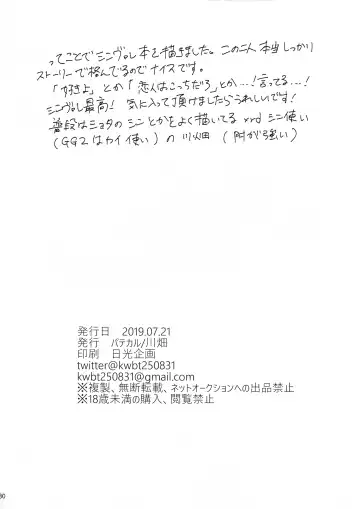 ってことでシンヴァレ本を描きました。この二人本当しっかり
ストーリーで絡んでるのでナイスです。
「好きよ」とか「恋人はこっちだろ」とか…!言ってる…!
シンヴァレ最高! 気に入って頂けましたらうれしいです!
普段はショタのシンとかをよく描いてる xrd シン使い
(GG2はカイ使い) の 川畑 (肉が強い)
発行日 2019.07.21
発行 パテカル/川畑
印刷 日光企画
twitter@kwbt250831
kwbt250831@gmail.com
※複製、無断転載、ネットオークションへの出品禁止
※18歳未満の購入、閲覧禁止
30